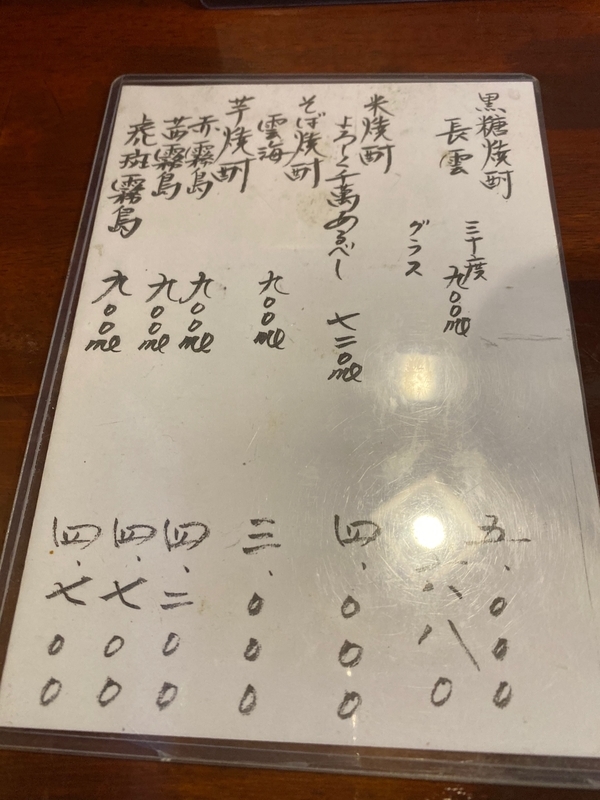 黒糖焼酎
長雲 三十度 九〇〇ml 五、〇〇〇
グラス 六八〇
米焼酎
よろしく千萬あるべし 七二〇ml 四、〇〇〇
そば焼酎
雲海 九〇〇ml 三、〇〇〇
芋焼酎
赤霧島 九〇〇ml 四、二〇〇
茜霧島 九〇〇ml 四、七〇〇
虎斑霧島 九〇〇ml 四、七〇〇